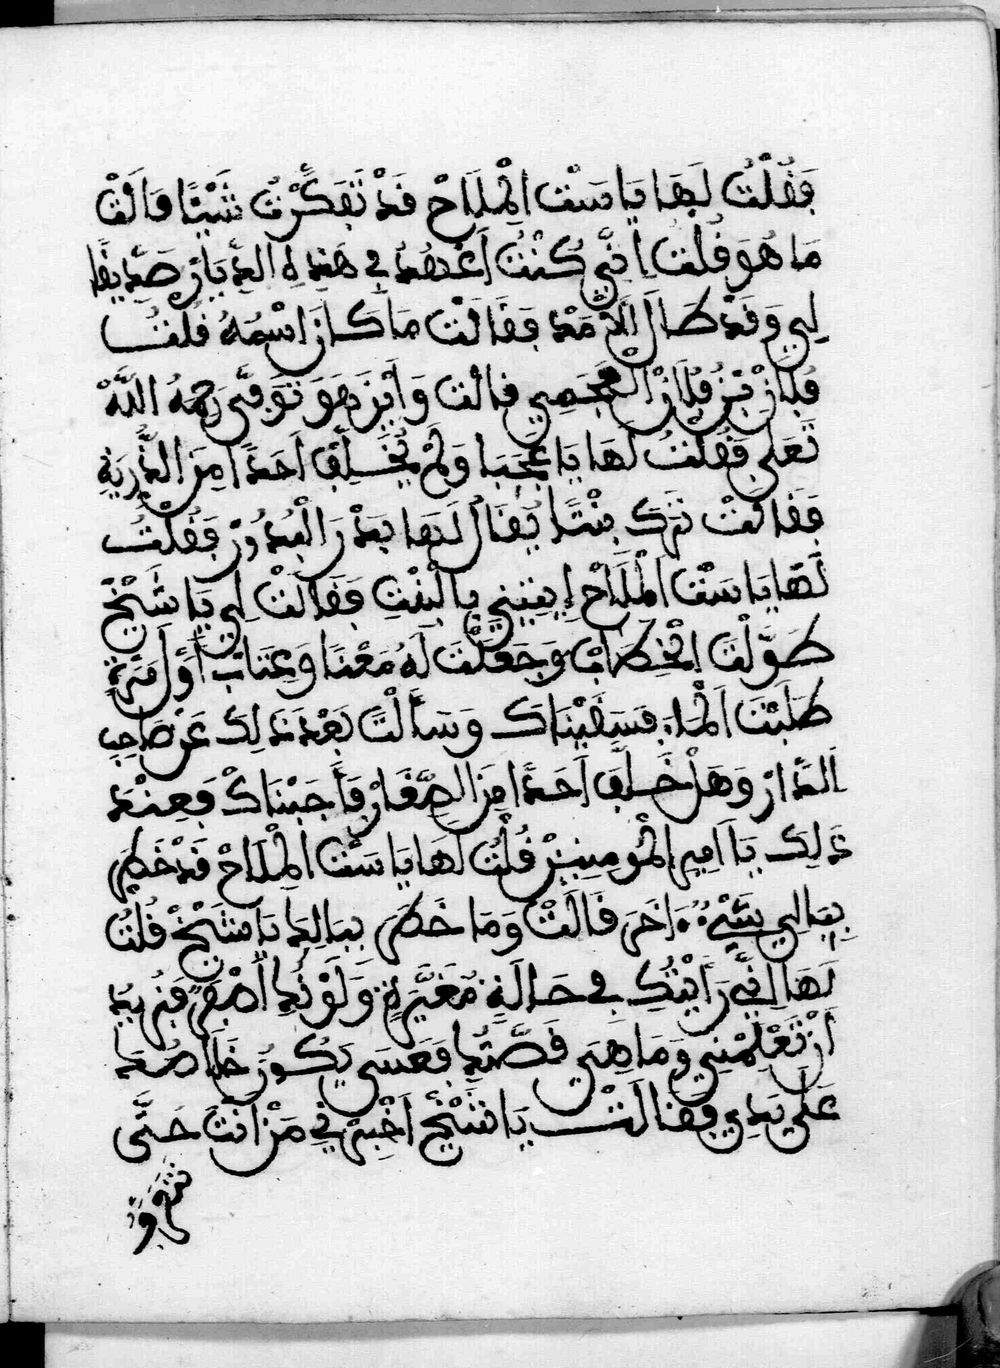 فَقُلْتُ لَهَا يَا سَتّ الْمِلَاحْ قَدْ تَفَكَّرْتُ شَيْئًا قَالَتْ
مَا هُوَ قُلْتُ اِنِّي كُنْتُ اَعْهَدُ فِي هَذِهِ الدِّيَارْ صَدِيقًا
لِي وَقَدْ طَالَ الاَمَدْ فَقَالَتْ مَا كَانَ اسْمُهُ قُلْتُ
فُلَانْ بْنُ فُلَانْ قالت وَاَيْنَ هَوَ تَوَفَّى رَحِمَهُ اللَّهُ
تَعَلَى فَقُلْتُ لَهَا يَا عَجَبَا وَلَمْ يُخَلِّفْ اَحَدًا مِنَ الذُّرِيَةِ
فَقَالَتْ تَرَكَ بِنْتًا يُقَالُ لَهَا بَدْرَ الْبُدُورْ فَقُلْتُ
لَهَا يَا سَتّ الْمِلَاحْ إِيتِينِي بِالْبِنْتِ فَقَالَتْ لِي يَا شَيْخْ
طَوَّلْتَ الْخِطَابْ وَجَعَلْتَ لَهُ مَعْنَا وَعِتَابْ أَوَّلَ مَرَّةٍ
طَلَبْتَ الْمَاءَ فَسَقَيْنَاكَ وَسَأَلْتَ بَعْدَ ذَلِكَ عَنْ صَاحِبِ
الدَّارْ وَهَلْ خَلَّفَ اَحَدًا مِنَ الصِّغَارْ فَأَجَبْنَاكْ فَعِنْدَ
ذَلِكَ يَا اَمِيرَ الْمُومِنِينْ قُلْتُ لَهَا يَا سَتّ الْمِلَاحْ قَدْ خَطَرَ
بِبَالِي شَيْءٌ ءَاخَرَ قَالَتْ وَمَا خَطَرَ بِبَالِكَ يَا شَيْخْ قُلْتُ
لَهَا اِنِّي رَأَيْتُكِ فِي حَالَةٍ مُغَيَّرَةٍ وَلَوْنُكِ أَصْفَرْ فَنُرِيدُ
اَنْ تُعْلِمْنِي وَمَا هِيَ قَصَّتُكِ فَعَسَى يَكُونُ خَلَاصُكِ
عَلَى يَدِي فَقَالَتْ يَا شَيْخْ اَخْبِرْنِي مَنْ اَنْتَ حَتَّى